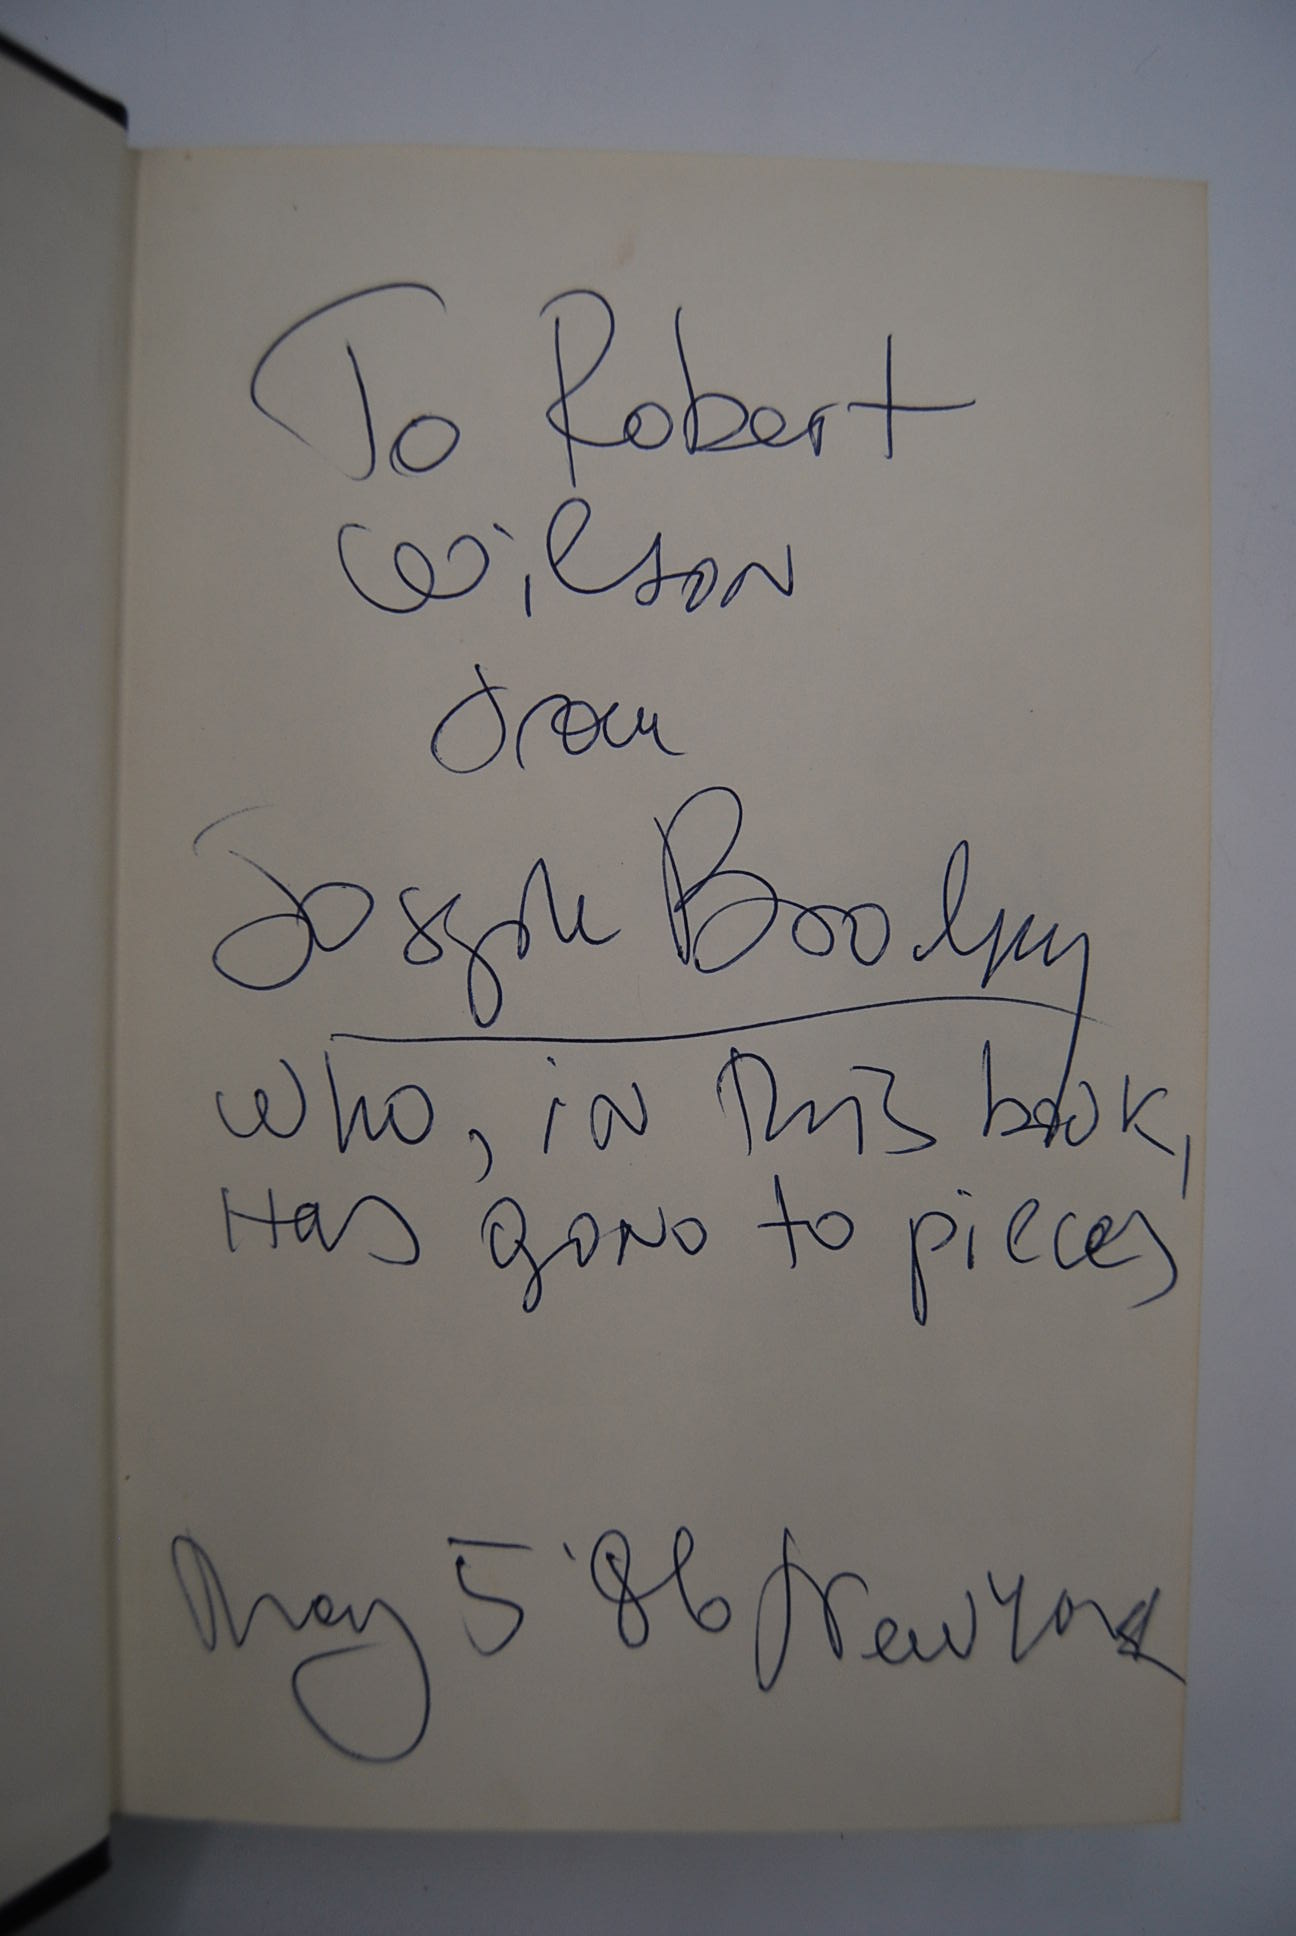 To Robert
Wilson
from
Joseph Brodsky
who, in this book,
Has gone to pieces
May 5 '86 New York